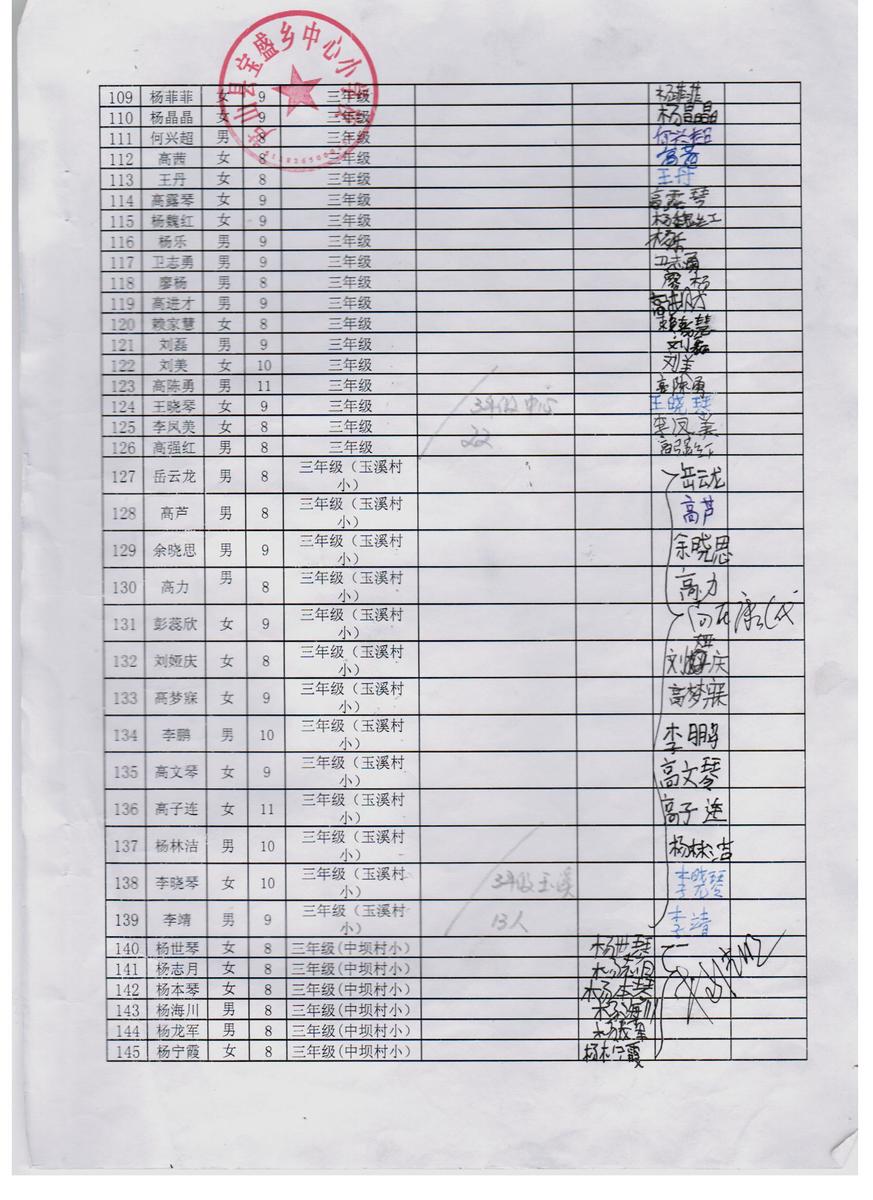 宝盛乡中心小学
109 杨菲菲 女 9 三年级 杨菲菲
110 杨晶晶 女 9 三年级 杨晶晶
111 何兴超 男 8 三年级 何兴超
112 高茜 女 8 三年级 高茜
113 王丹 女 8 三年级 王丹
114 高露琴 女 9 三年级 高露琴
115 杨魏红 女 9 三年级 杨魏红
116 杨乐 男 9 三年级 杨乐
117 卫志勇 男 9 三年级 卫志勇
118 廖杨 男 8 三年级 廖杨
119 高进才 男 9 三年级 高进才
120 赖家慧 女 8 三年级 赖家慧
121 刘磊 男 9 三年级 刘磊
122 刘美 女 10 三年级 刘美
123 高陈勇 男 11 三年级 高陈勇
124 王晓琴 女 9 三年级 3年级中心 王晓琴
125 李凤美 女 8 三年级 22 李凤美
126 高强红 男 8 三年级 高强红
127 岳云龙 男 8 三年级（玉溪村 岳云龙
小）
128 高芦 男 8 三年级（玉溪村 高芦
小）
129 余晓思 男 9 三年级（玉溪村 余晓思
小）
130 高力 男 8 三年级（玉溪村 高力
小）
131 彭蕊欣 女 9 三年级（玉溪村
小）
132 刘娅庆 女 8 三年级（玉溪村 刘娅庆
小）
133 高梦寐 女 9 三年级（玉溪村 高梦寐
小）
134 李鹏 男 10 三年级（玉溪村 李鹏
小）
135 高文琴 女 9 三年级（玉溪村 高文琴
小）
136 高子连 女 11 三年级（玉溪村 高子连
小）
137 杨林洁 男 10 三年级（玉溪村 杨林洁
小）
138 李晓琴 女 10 三年级（玉溪村 3年级玉溪 李晓琴
小）
139 李靖 男 9 三年级（玉溪村 13人 李靖
小）
140 杨世琴 女 8 三年级(中坝村小） 杨世琴
141 杨志月 女 8 三年级(中坝村小） 杨志月
142 杨本琴 女 8 三年级(中坝村小） 杨本琴
143 杨海川 男 8 三年级(中坝村小） 杨海川
144 杨龙军 男 8 三年级(中坝村小） 杨龙军
145 杨宁霞 女 8 三年级(中坝村小） 杨宁霞